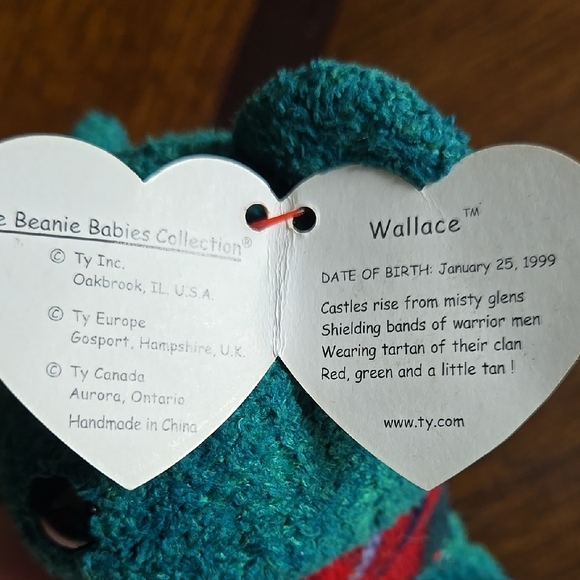 e Beanie Babies Collection®
© Ty Inc.
Oakbrook, IL. U.S.A.
© Ty Europe
Gosport, Hampshire, U.K.
© Ty Canada
Aurora, Ontario
Handmade in China
Wallace™
DATE OF BIRTH: January 25, 1999
Castles rise from misty glens
Shielding bands of warrior men
Wearing tartan of their clan
Red, green and a little tan !
www.ty.com